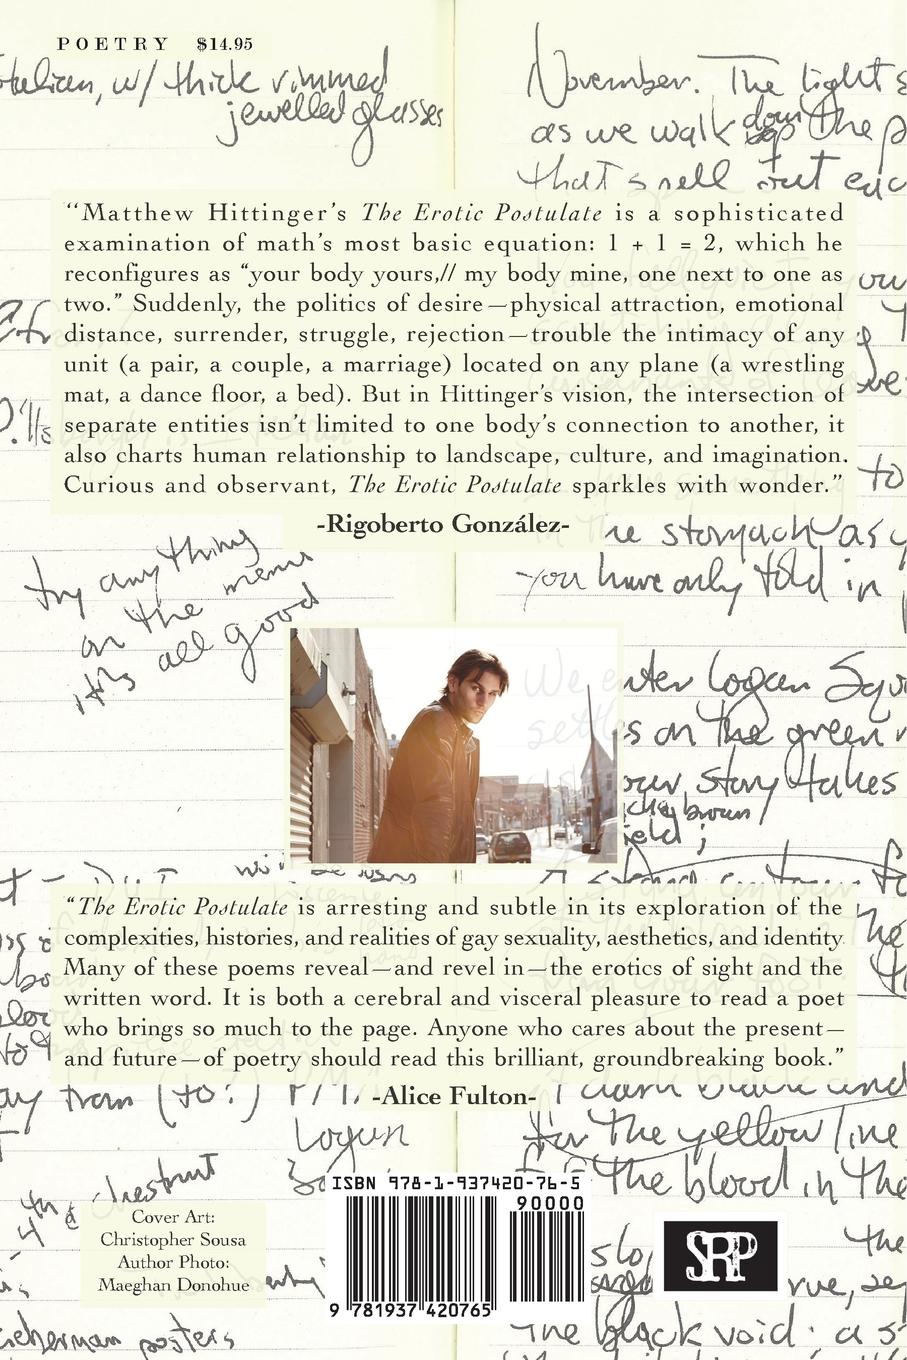 POETRY $14.95
w/ thick rimmed
jewelled glasses
November. The light
as we walk down the
that spell out
“Matthew Hittinger’s The Erotic Postulate is a sophisticated
examination of math’s most basic equation: 1 + 1 = 2, which he
reconfigures as “your body yours,// my body mine, one next to one as
two.” Suddenly, the politics of desire—physical attraction, emotional
distance, surrender, struggle, rejection—trouble the intimacy of any
unit (a pair, a couple, a marriage) located on any plane (a wrestling
mat, a dance floor, a bed). But in Hittinger’s vision, the intersection of
separate entities isn’t limited to one body’s connection to another, it
also charts human relationship to landscape, culture, and imagination.
Curious and observant, The Erotic Postulate sparkles with wonder.”
to
-Rigoberto González-
stomach as
you have only told in
try anything
on the menu
it's all good
We enter Logan
settles on the green
our story takes
brown/
field;
“The Erotic Postulate is arresting and subtle in its exploration of the
complexities, histories, and realities of gay sexuality, aesthetics, and identity.
Many of these poems reveal—and revel in—the erotics of sight and the
written word. It is both a cerebral and visceral pleasure to read a poet
who brings so much to the page. Anyone who cares about the present—
and future—of poetry should read this brilliant, groundbreaking book.”
-Alice Fulton-
from (to?)
dark black and
Logan
for the yellow line
the blood in the
4th & chestnut
Cover Art:
Christopher Sousa
Author Photo:
Maeghan Donohue
ISBN 978-1-937420-76-5
90000
9 781937 420765
SRP
the
posters
the black void: a